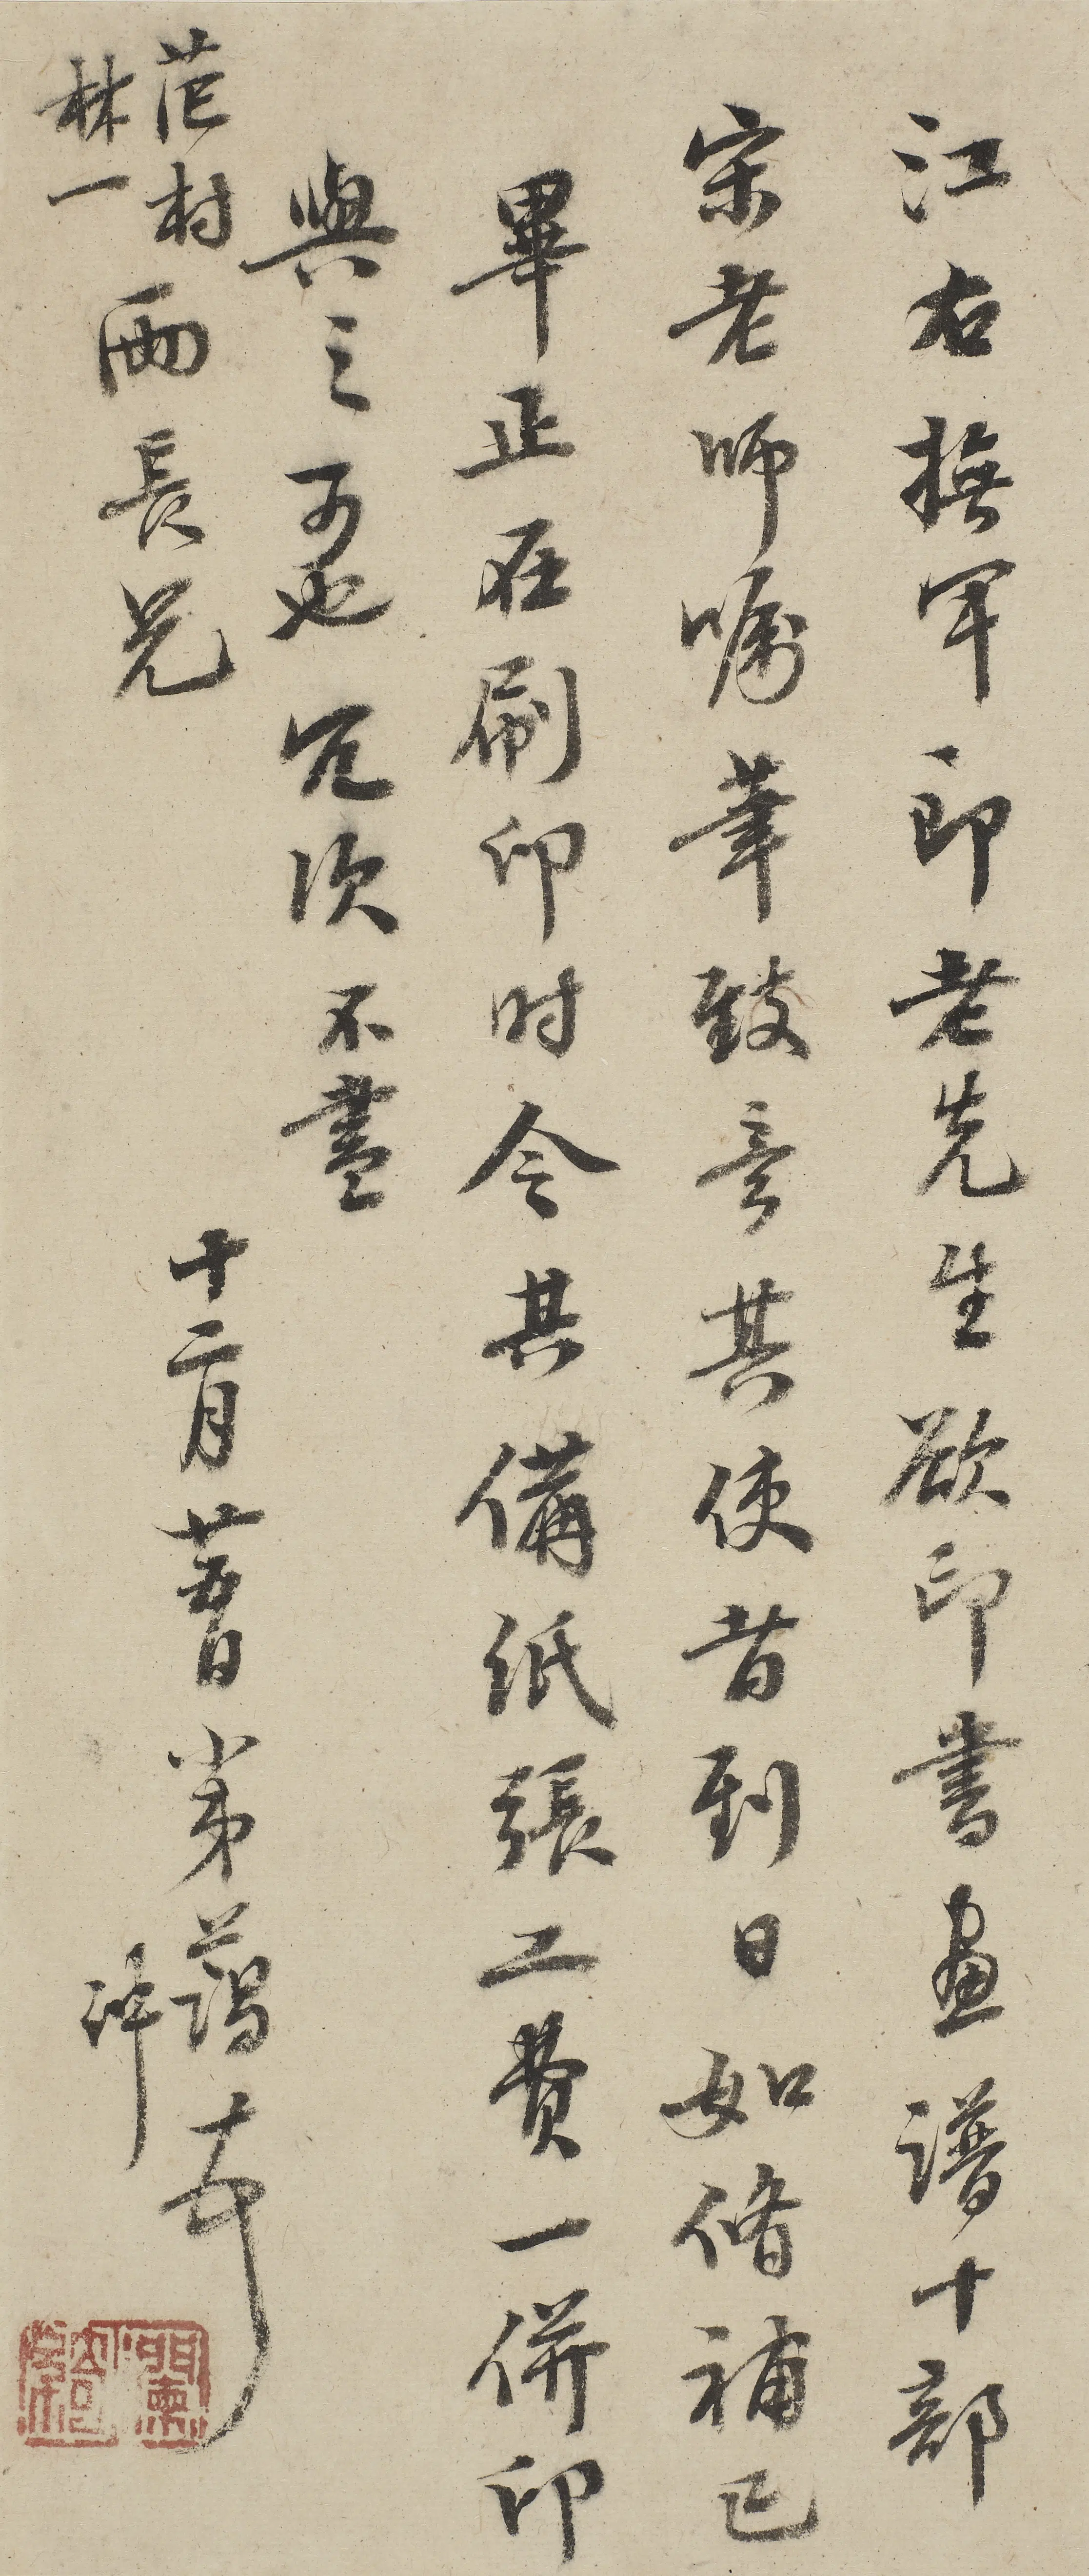 江右撫軍郎老先生欲印書畫譜十部
宋老師囑筆致意其使者到日如脩補已
畢正在刷印时令其備紙張工費一併印
與之可也冗次不盡
十二月廿五日弟藹
范村
林一
兩長兄